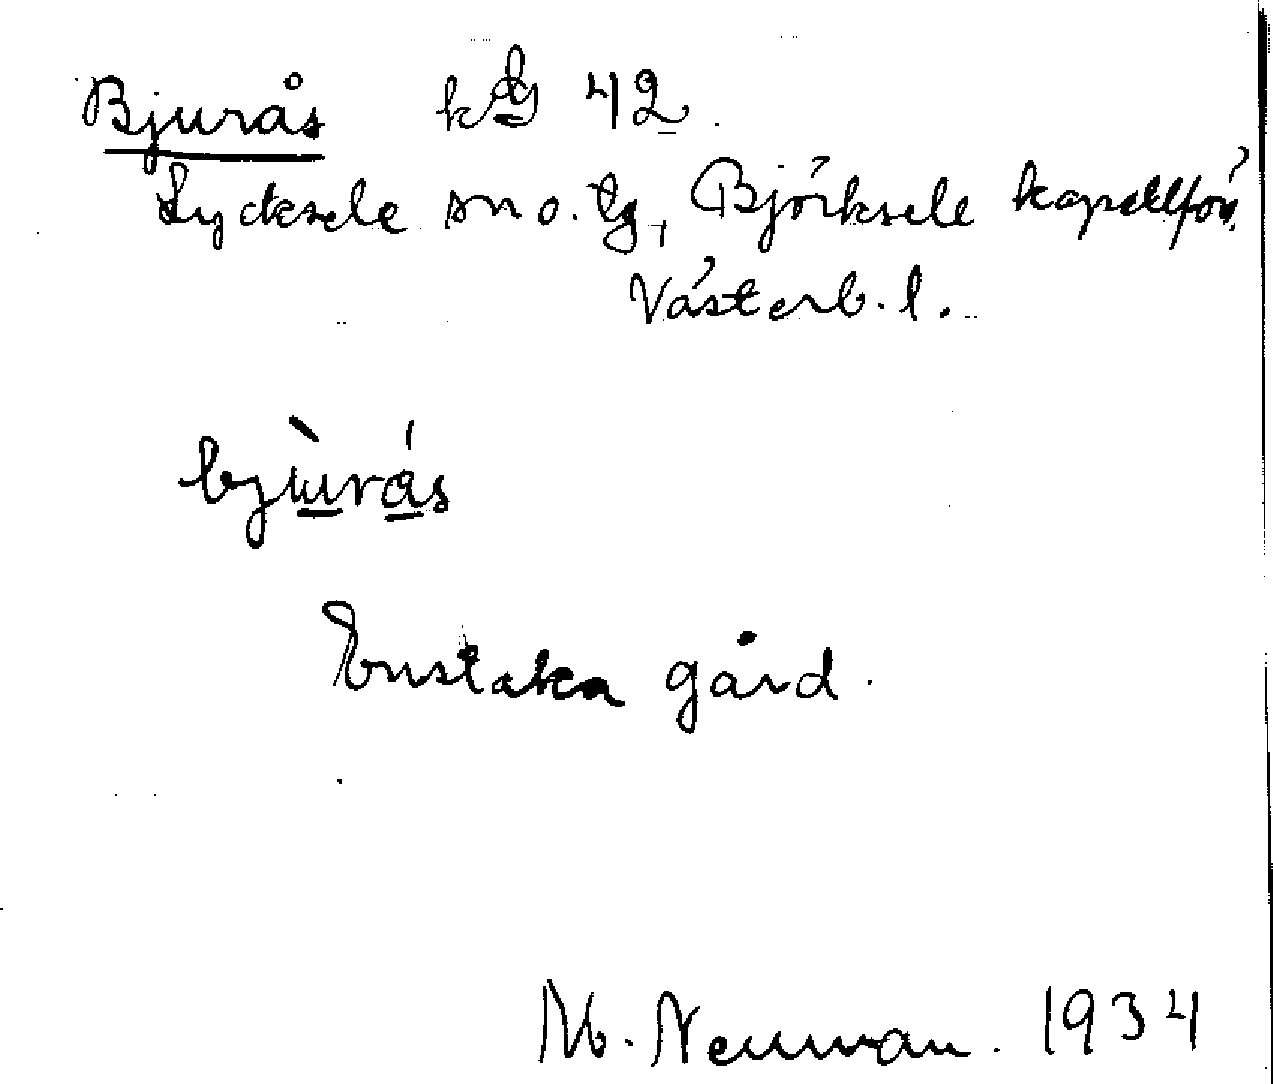 Bjurås kbl 42.
Lycksele sn o. tg, Björksele kapellförs.
Västerb. l.
bjùrás
Enstaka gård.
M. Neuman. 1934